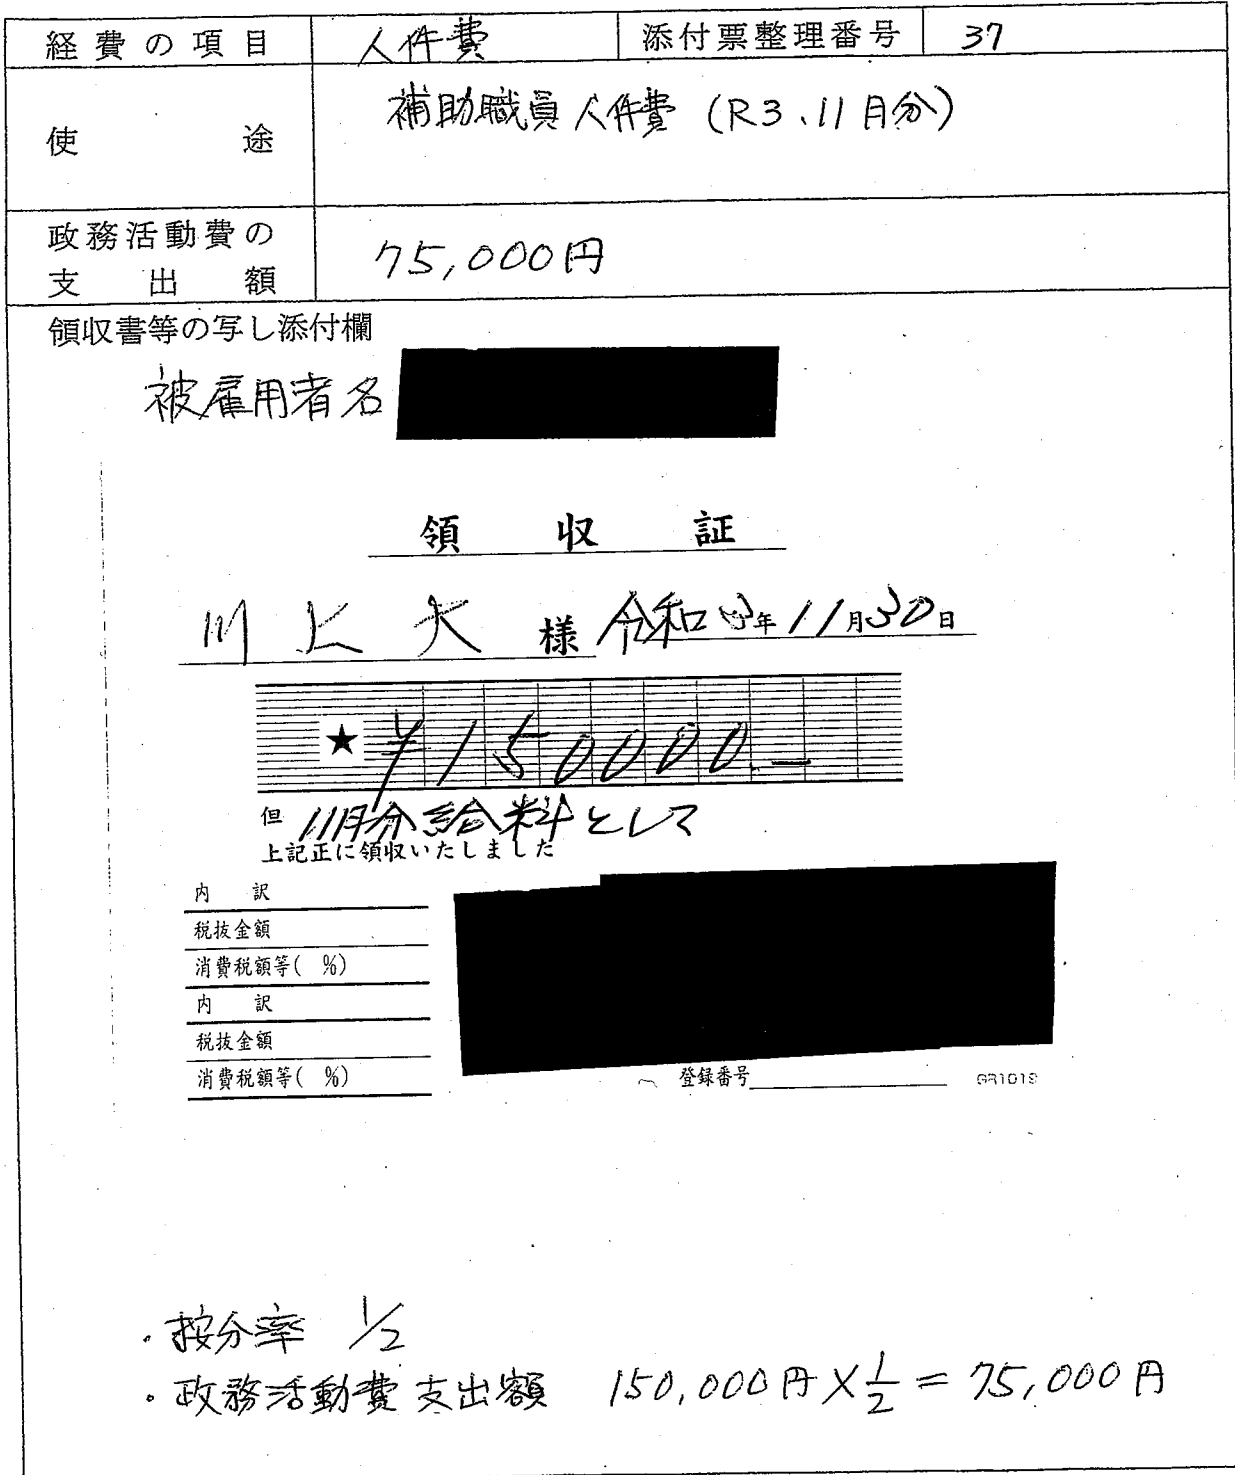 経費の項目 人件費 添付票整理番号 37
使途 補助職員人件費 (R3.11月分)
政務活動費の
支出額 75,000円
領収書等の写し添付欄
被雇用者名
領収証
川上大 様 令和3年11月30日
★ ¥150000.-
但 11月分給料として
上記正に領収いたしました
内訳
税抜金額
消費税額等( %)
内訳
税抜金額
消費税額等( %)
登録番号 GR1019
・按分率 1/2
・政務活動費支出額 150,000円×1/2=75,000円